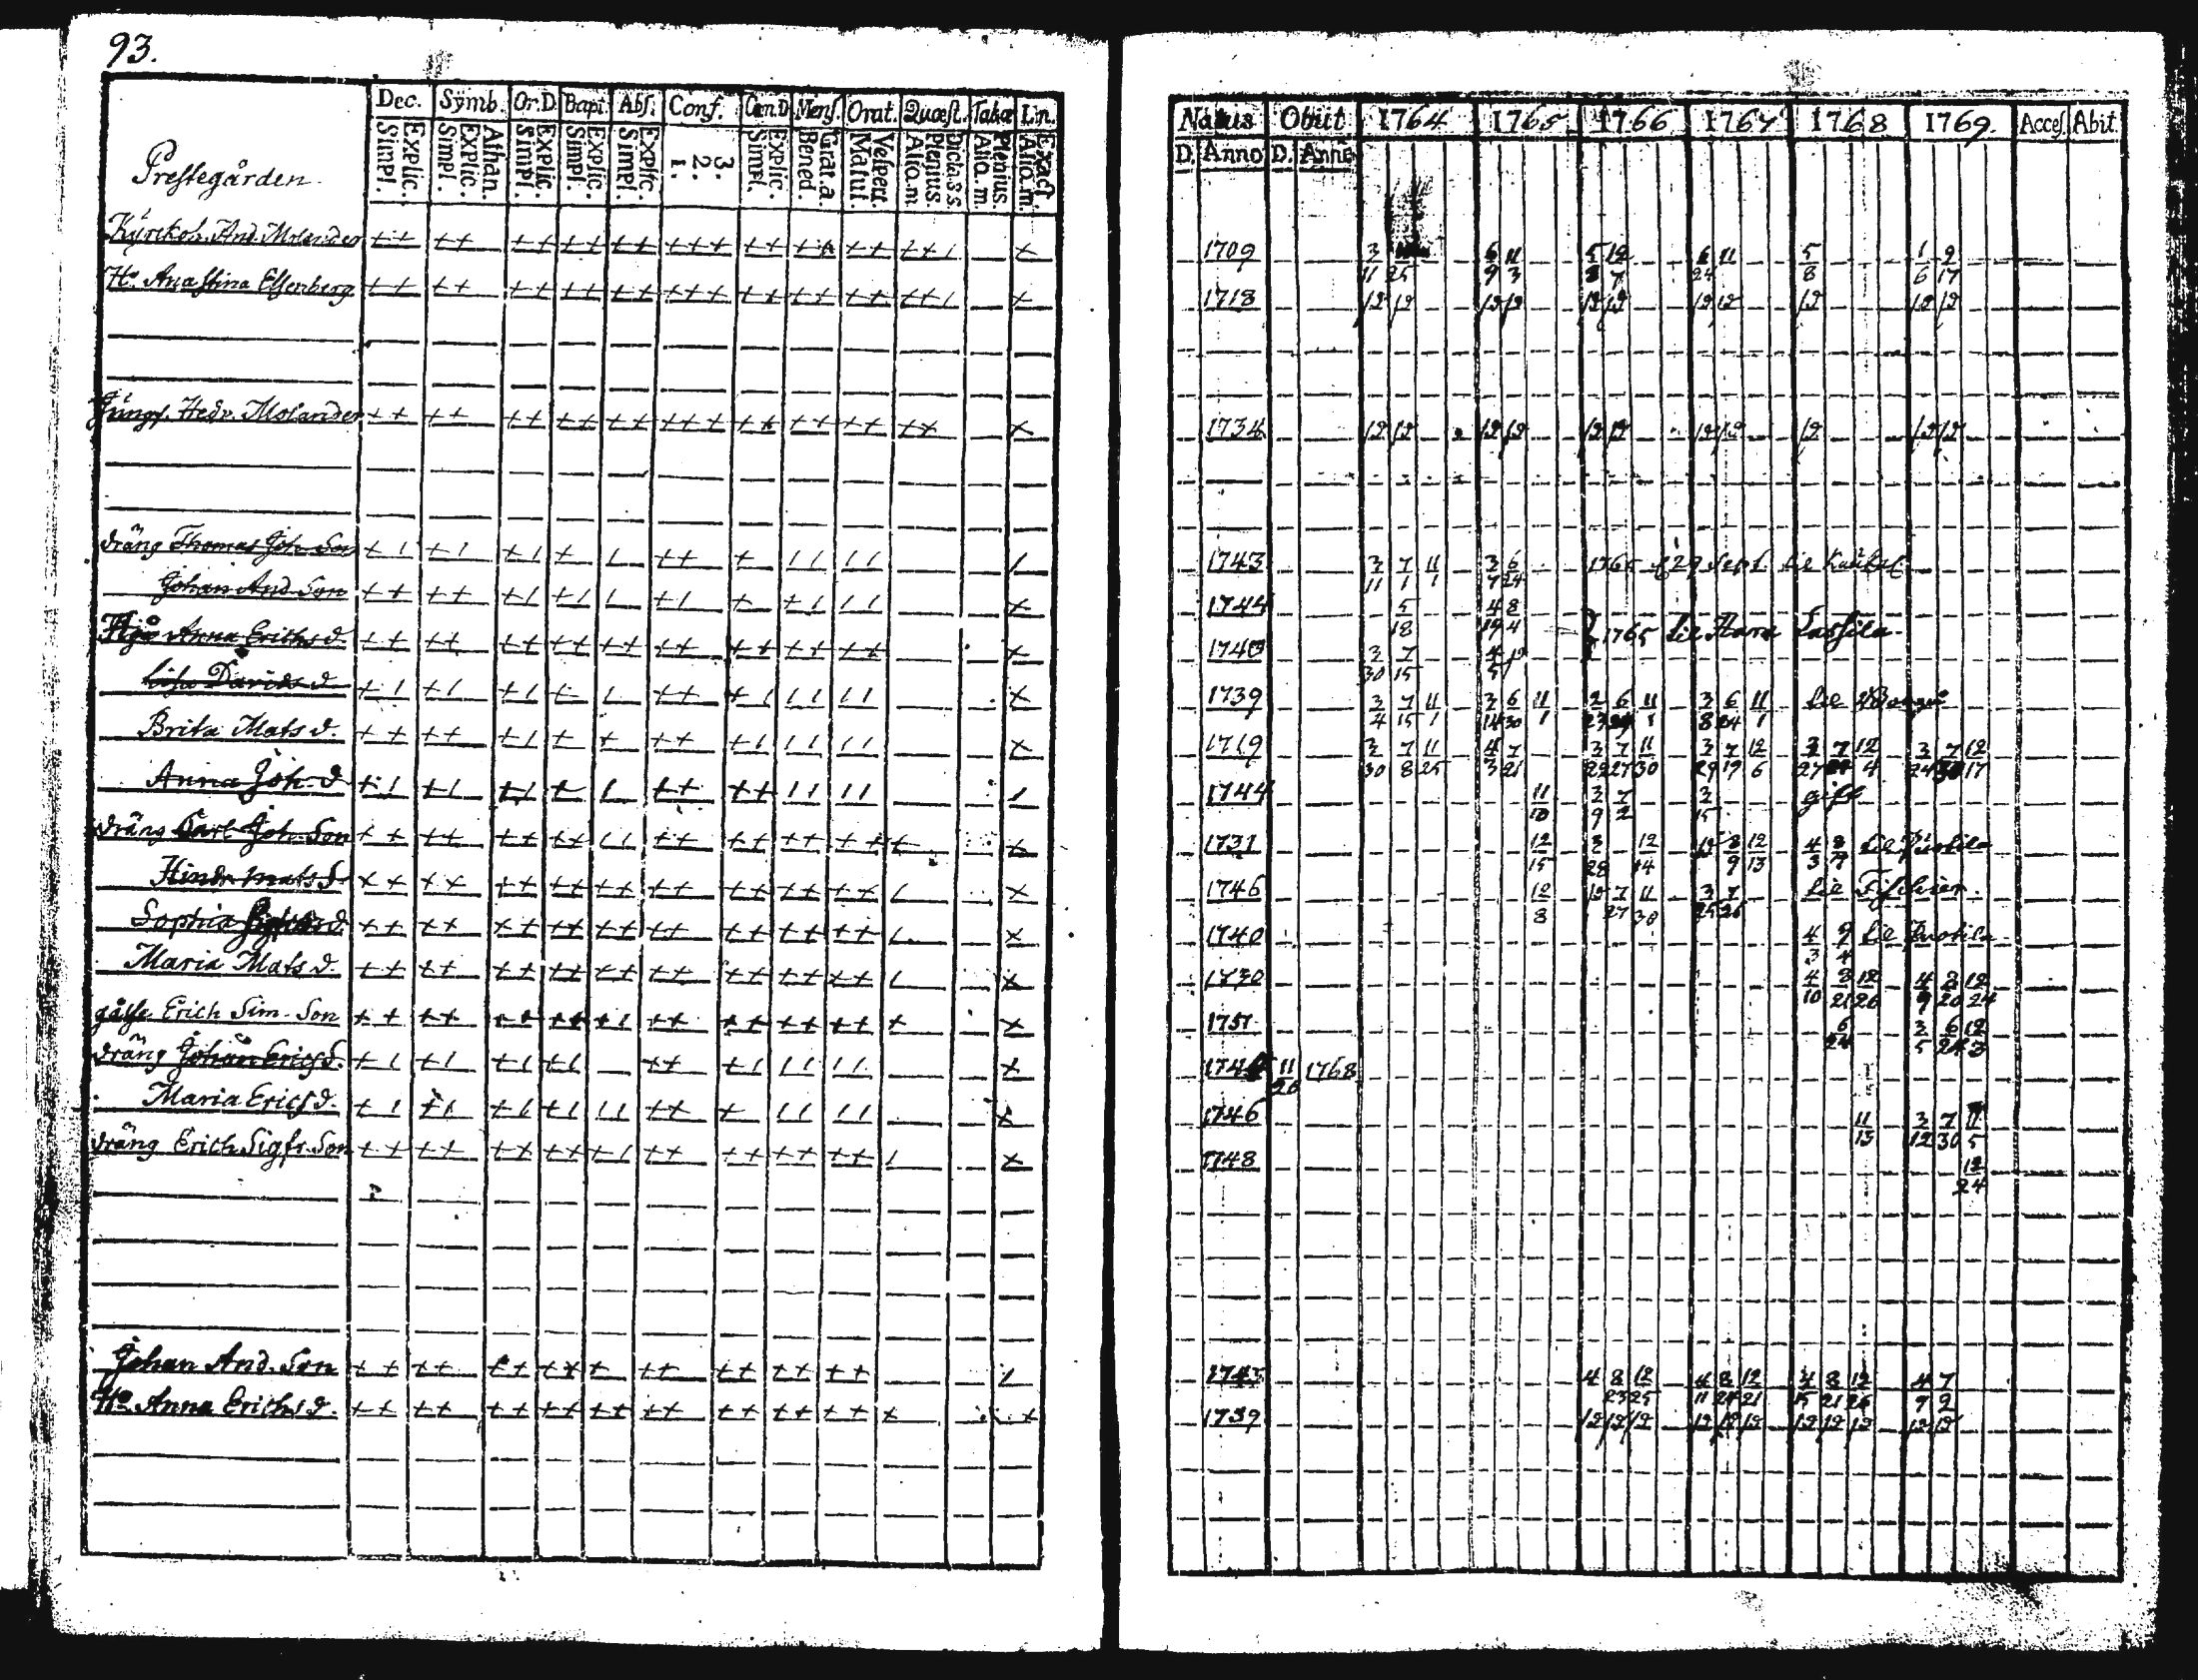 93.
Dec. Symb. Or.D. Bapt. Abſ. Conf. Cœn.D. Menſ. Orat. Quæſt. Tabæ Lin.
Explic. Simpl. Athan. Explic. Simpl. Explic. Simpl. Explic. Simpl. Explic. Simpl. 3. 2. 1. Explic. Simpl. Grat.a. Bened. Veſpert. Matut. Dicta.s.s. Plenius. Aliq.m. Plenius. Aliq.m. Exact. Aliq.m.
Preſtegården
Kyrckoh. And. Molander ++ ++ ++ ++ ++ +++ ++ ++ ++ ++1 +
H:o Anaſtina Eſſenberg ++ ++ ++ ++ ++ +++ ++ ++ ++ ++1 +
Jungf. Hedv. Molander ++ ++ ++ ++ ++ +++ ++ ++ ++ ++ +
dräng Thomas Joh. Son +1 +1 +1 + 1 ++ + 11 11 1
Johan And. Son ++ ++ +1 +1 1 +1 + +1 11 +
Anna Erichs d. ++ ++ ++ ++ ++ ++ ++ ++ ++ +
Lisa Davids d +1 +1 +1 + 1 ++ +1 11 11 +
Brita Mats d. ++ ++ +1 + + ++ +1 11 11 +
Anna Joh. d +1 +1 +1 + 1 ++ ++ 11 11 1
dräng Carl Joh. Son ++ ++ ++ ++ 11 ++ ++ ++ ++ + +
Hindr. Mats S. ++ ++ ++ ++ ++ ++ ++ ++ ++ 1 +
Sophia d. ++ ++ ++ ++ ++ ++ ++ ++ ++ 1 +
Maria Mats d. ++ ++ ++ ++ ++ ++ ++ ++ ++ 1 +
gåſse Erich Sim. Son ++ ++ ++ ++ +1 ++ ++ ++ ++ + +
dräng Johan Erics S. +1 +1 +1 +1 ++ +1 11 11 +
Maria Ericſ d. +1 +1 +1 +1 11 ++ + 11 11 +
dräng Erich Sigfr. Son ++ ++ ++ ++ +1 ++ ++ ++ ++ 1 +
Johan And. Son ++ ++ ++ ++ + ++ ++ ++ ++ 1
H:o Anna Erichs d. ++ ++ ++ ++ ++ ++ ++ ++ ++ + +
Natus Obiit 1764 1765 1766 1767 1768 1769. Acceſ. Abit.
D. Anno D. Anno
1709 3 6 11 5 12 6 11 5 1 9
11 25 9 3 8 7 24 8 6 17
1718 12 12 12 12 12 12 12 12 12 12 12
1734 12 12 12 12 12 12 12 12 12 12 12
1743 3 7 11 3 6 1765 d 29 Sept. til
11 1 1 7 24
1744 5 4 8
18 19 4 1765 til Hara Laſsila.
1740 3 7 4
30 15 5
1739 3 7 11 3 6 11 2 6 11 3 6 11 til
4 15 1 14 30 1 23 1 8 24 1
1719 3 7 11 4 7 3 7 11 3 7 12 3 7 12 3 7 12
30 8 25 3 21 22 27 30 29 19 6 27 4 24 30 17
1744 11 3 7 3 gift
10 9 2 15
1731 12 3 12 12 8 12 4 8 til
15 28 14 9 13 3 9
1746 12 12 7 11 3 7 til
8 27 30 25 26
1740 4 9 til
3 4
1730 4 8 12 4 8 12
10 21 26 9 20 24
1751 6 3 6 12
24 5 24 3
1744 11 1768
26
1746 11 3 7 11
13 12 30 5
1748 12
24
1743 4 8 12 4 8 12 4 8 12 4 7
23 25 11 24 21 15 21 26 9 2
1739 12 12 12 12 12 12 12 12 12 12 12